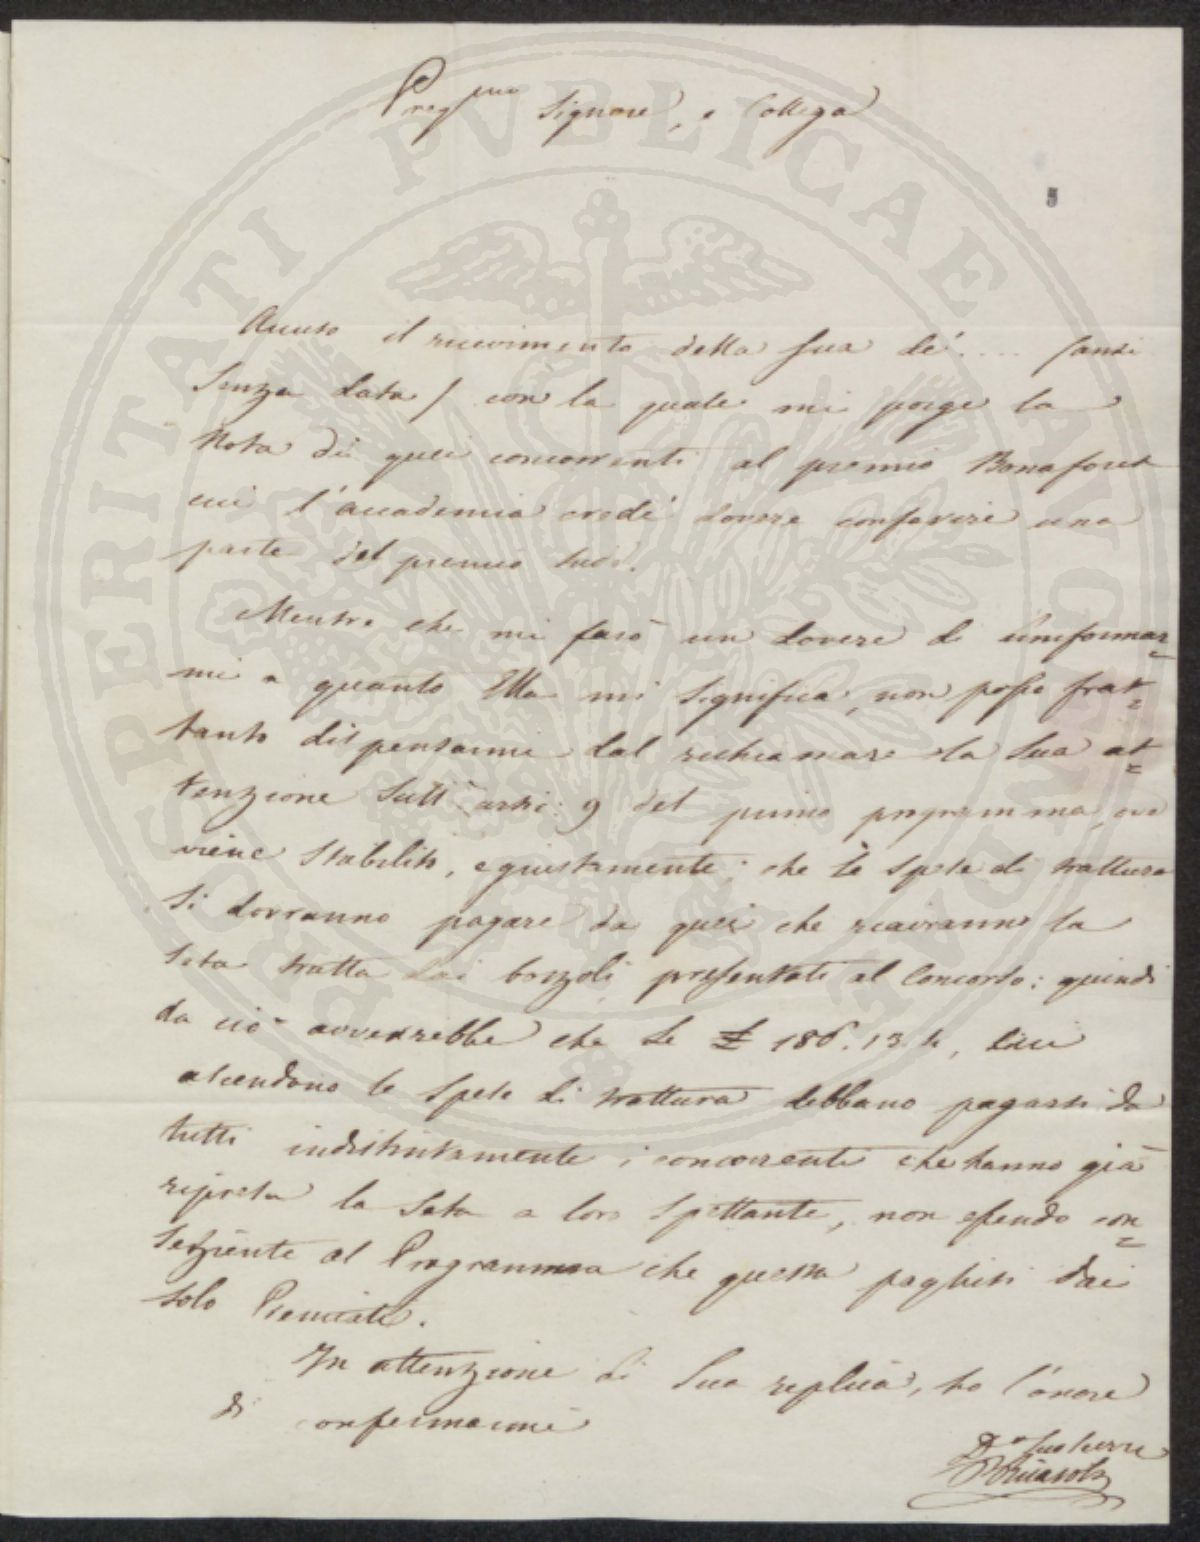 Preg.mo Signore, e Collega
5
Accuso il ricevimento della sua de' .... (anzi
senza data) con la quale mi porge la
Nota di quei concorrenti al premio Bonafoux
cui l'accademia credè dovere conferire una
parte del premio sud.o
Mentre che mi farò un dovere di uniformar=
mi a quanto Ella mi significa, non posso frat=
tanto dispensarmi dal richiamare la sua at=
tenzione sull' arti: 9 del primo programma, ove
viene stabilito, e giustamente; che le spese di trattura
si dovranno pagare da quei che riceveranno la
seta tratta dai bozzoli presentati al Concorso: quindi
da ciò avverrebbe che le £ 186.13.4, a cui
ascendono le spese di trattura debbano pagarsi da
tutti indistintamente i concorrenti che hanno già
ripresa la seta a loro spettante, non essendo con=
seziente al Programma che questa paghisi dai
solo Premiati.
In attenzione di sua replica, ho l'onore
di confermarmi
PVBLICAE
PROSPERITATI